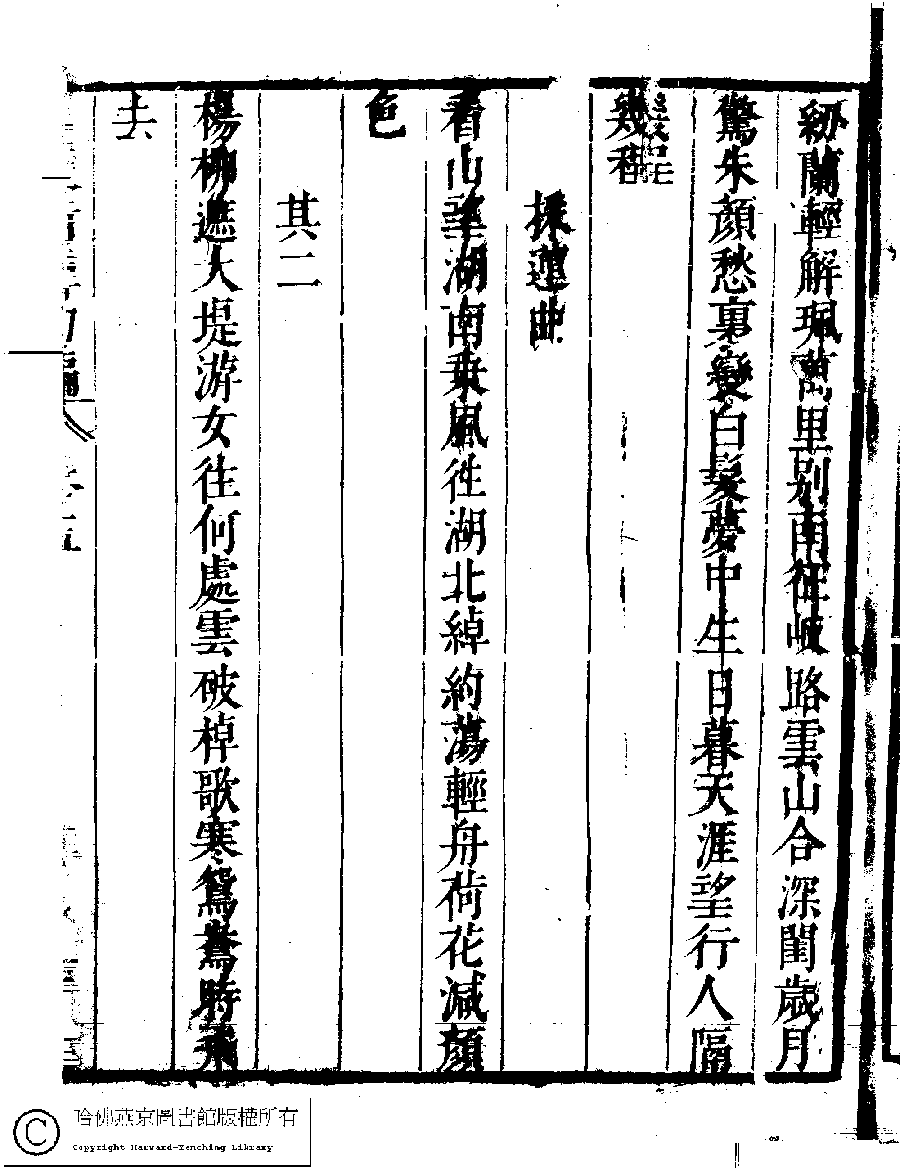 紉蘭輕解珮萬里別南征岐路雲山合深閨歲月
驚朱顏愁裏變白髮夢中生日暮天涯望行人隔
幾程
採蓮曲
看山望湖南乘風徃湖北綽約蕩輕舟荷花減顏
色
其二
楊柳遮大堤游女往何處雲破棹歌寒鴛鴦時飛
去
哈佛燕京圖書館版權所有
Copyright Harvard-Yenching Library